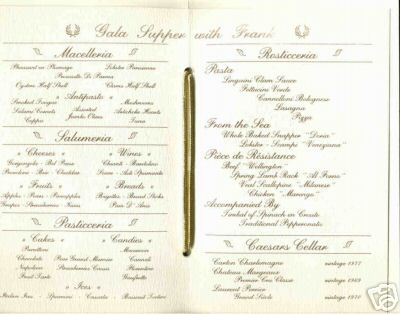 Gala Supper with Frank
Macelleria
Pheasant en Plumage Lobster Parisienne
Prosciutto Di Parma
Oysters Half Shell Clams Half Shell
Antipasto
Smoked Tongue Mushrooms
Sedani Carrots Assorted Artichoke Hearts
Coppa Juncle Olives Tuna
Salumeria
Cheeses Wines
Gorgonzola Bel Paese Chianti Bardolino
Provolone Brie Cheddar Soave Asti Spumante
Fruits Breads
Apples Pears Pineapples Brigittes Bread Sticks
Grapes Strawberries Kiwis Pain D' Ania
Pasticceria
Cakes Candies
Panettoni Macaroon
Chocolate Pear Grand Marnier Cannoli
Napoleon Strawberries Cream Florentine
Fruit Torte Gianfretto
Ices
Italian Ices Spumoni Cassata Biscuit Tortoni
Rosticceria
Pasta
Linguini Clam Sauce
Fettucini Verde
Cannelloni Bolognese
Lasagna
Pizza
From the Sea
Whole Baked Snapper "Doria"
Lobster Scampi "Veneziana"
Pièce de Résistance
Beef "Wellington"
Spring Lamb Rack "Al Forno"
Veal Scallopine "Milanese"
Chicken "Marengo"
Accompanied By
Timbal of Spinach en Croute
Traditional Pepperonata
Caesars Cellar
Corton Charlemagne vintage 1977
Chateau Margeaux
Premier Cru Classe vintage 1969
Laurent Perrier
Grand Siècle vintage 1970